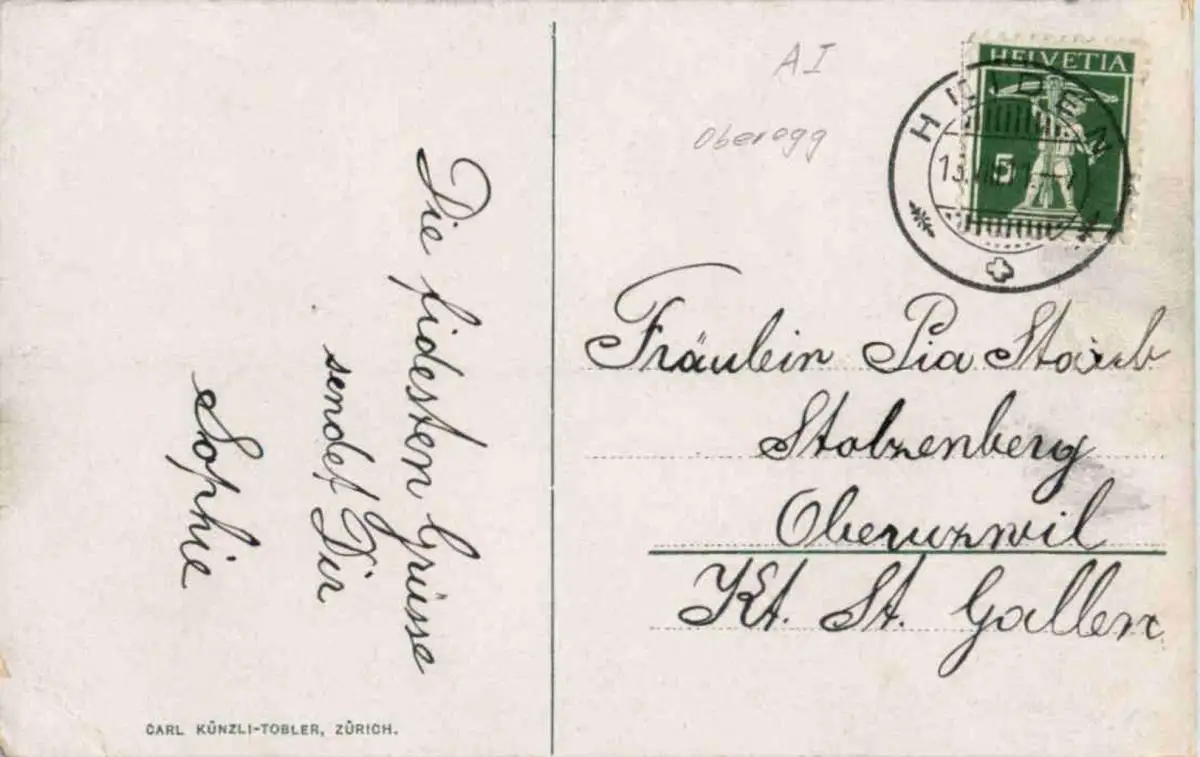 Die fidesten Grüsse
sendet Dir
Sophie
CARL KÜNZLI-TOBLER, ZÜRICH.
AI
Oberegg
HELVETIA
5
HEIDEN
Fräulein Pia Staub
Stolzenberg
Oberuzwil
Kt. St. Gallen